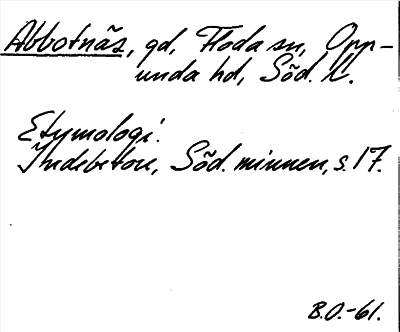 Abbotnäs, gd, Floda sn, Opp-
unda hd, Söd. l.
Etymologi.
Indebetou, Söd. minnen, s. 17.
B.O.-61.